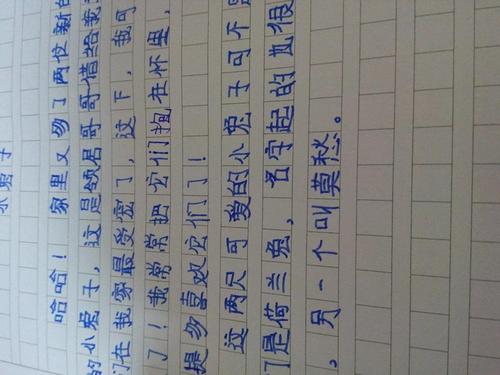 兔子
哈哈！家里又多了两位新
的小兔子，这是领君哥哥借给我
们在我家最受宠了，这下，我可
了！我常常把它们抱在怀里，
提多喜欢它们了！
这两只可爱的小兔子可不
们是荷兰兔，名字起的也很
，另一个叫莫愁。